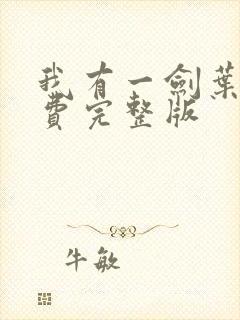 我有一劍葉
費完整版
牛敏